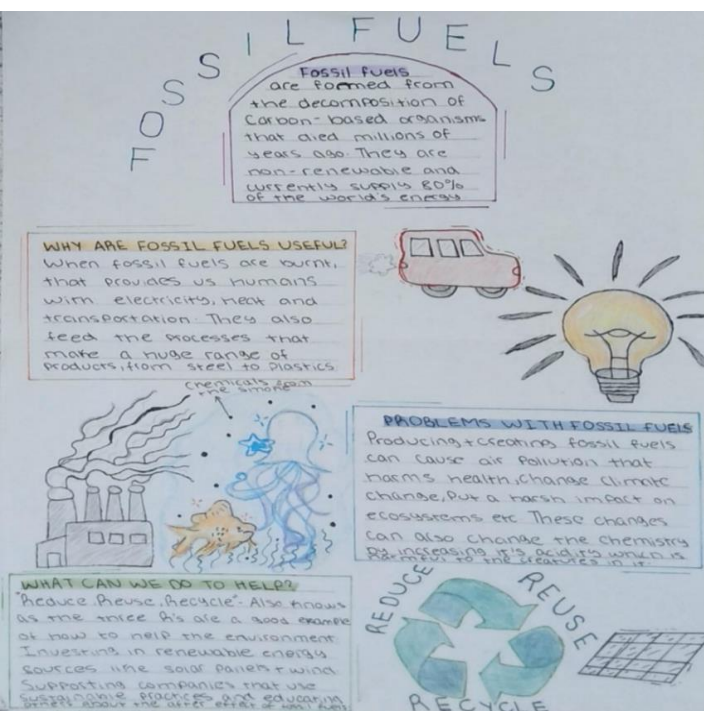 FOSSIL FUELS
Fossil fuels
are formed from
the decomposition of
Carbon-based organisms
that died millions of
years ago. They are
non-renewable and
currently supply 80%
of the world's energy
WHY ARE FOSSIL FUELS USEFUL?
When fossil fuels are burnt,
that provides us humans
with electricity, heat and
transportation. They also
feed the processes that
make a huge range of
products, from steel to plastics.
Chemicals from
the smoke
PROBLEMS WITH FOSSIL FUELS
Producing + creating fossil fuels
can cause air pollution that
harms health, change climate
change, put a harsh impact on
ecosystems etc These changes
can also change the chemistry
by increasing it's acidity which is
harmful to the creatures in it.
WHAT CAN WE DO TO HELP?
"Reduce, Reuse, Recycle" - Also known
as the three R's are a good example
of how to help the environment.
Investing in renewable energy
sources like solar panels + wind
Supporting companies that use
sustainable practices and educating
others about the after effect of fossil fuels
REDUCE
REUSE
RECYCLE